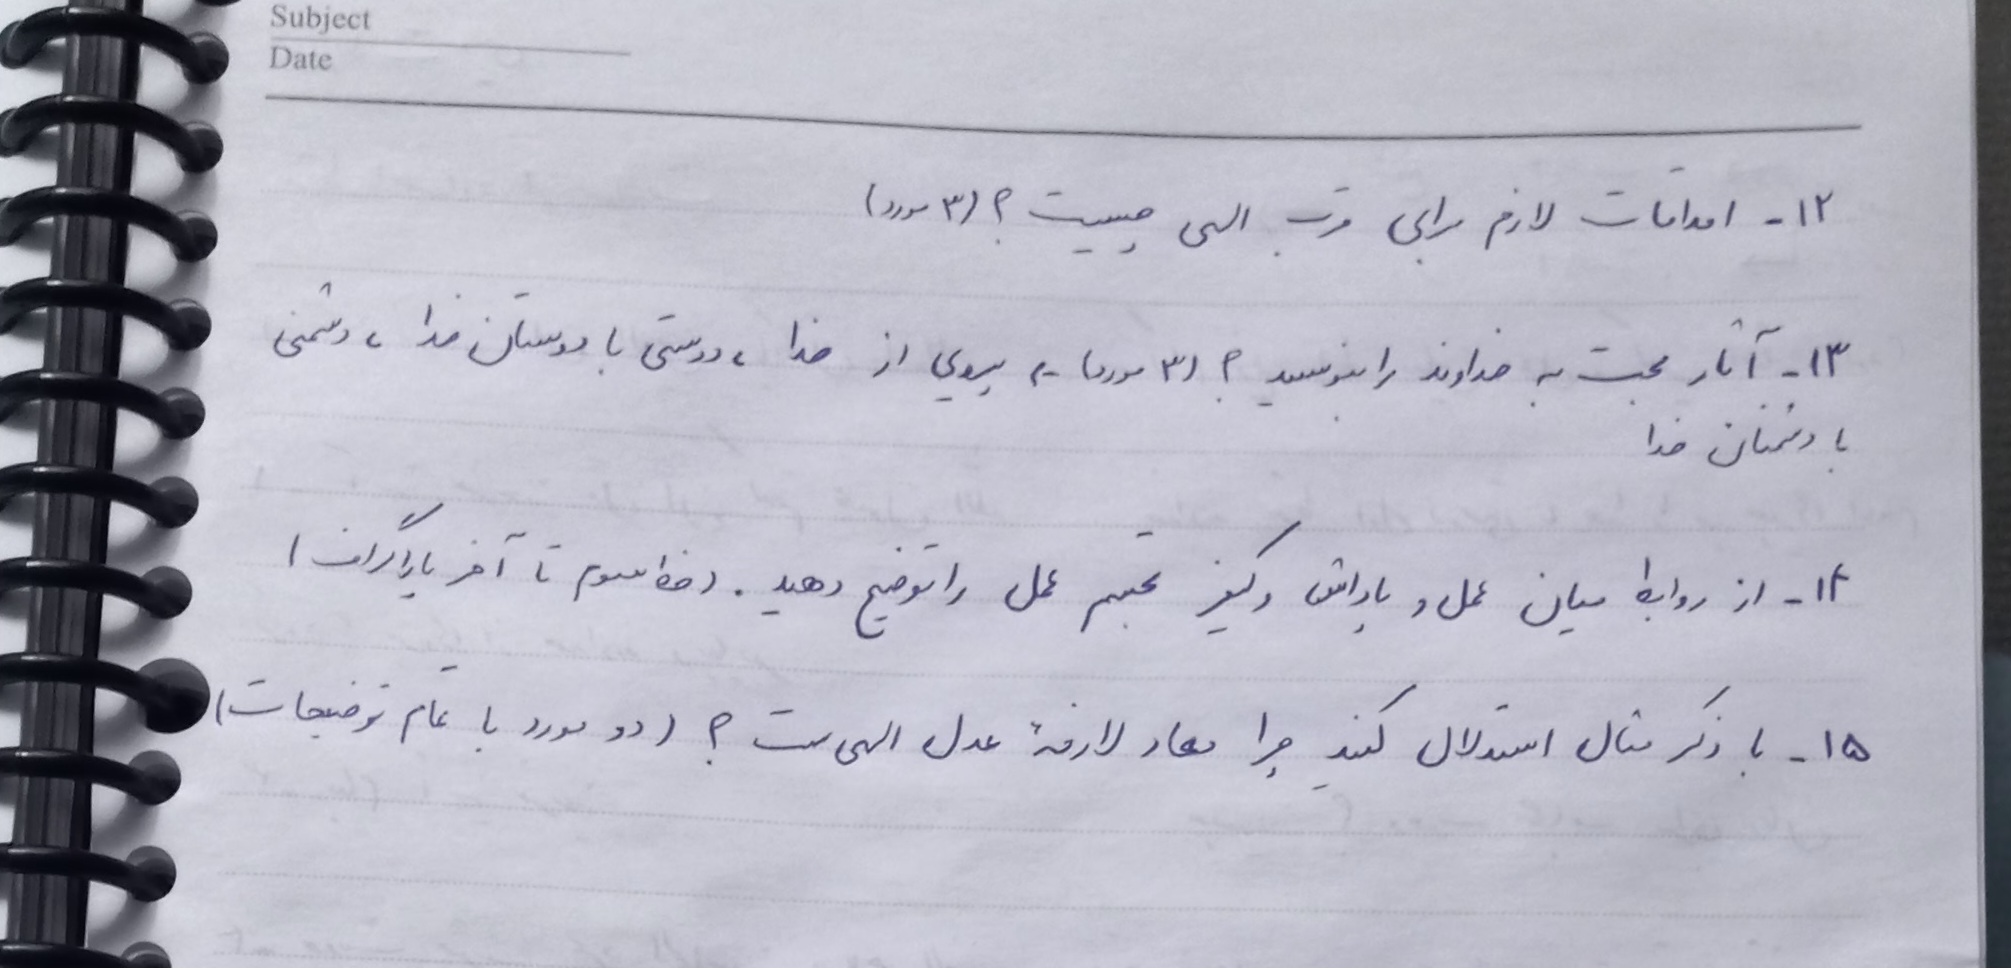 Subject
Date
۱۲- اقدامات لازم برای قرب الهی چیست؟ (۳ مورد)
۱۳- آثار محبت به خداوند را بنویسید؟ (۳ مورد) → پیروی از خدا، دوستی با دوستان خدا، دشمنی
با دشمنان خدا
۱۴- از روابط میان عمل و پاداش و کیفر تجسم عمل را توضیح دهید. (خط سوم تا آخر پاراگراف)
۱۵- با ذکر مثال استدلال کنید چرا معاد لازمهٔ عدل الهی ست؟ (دو مورد با تمام توضیحات)